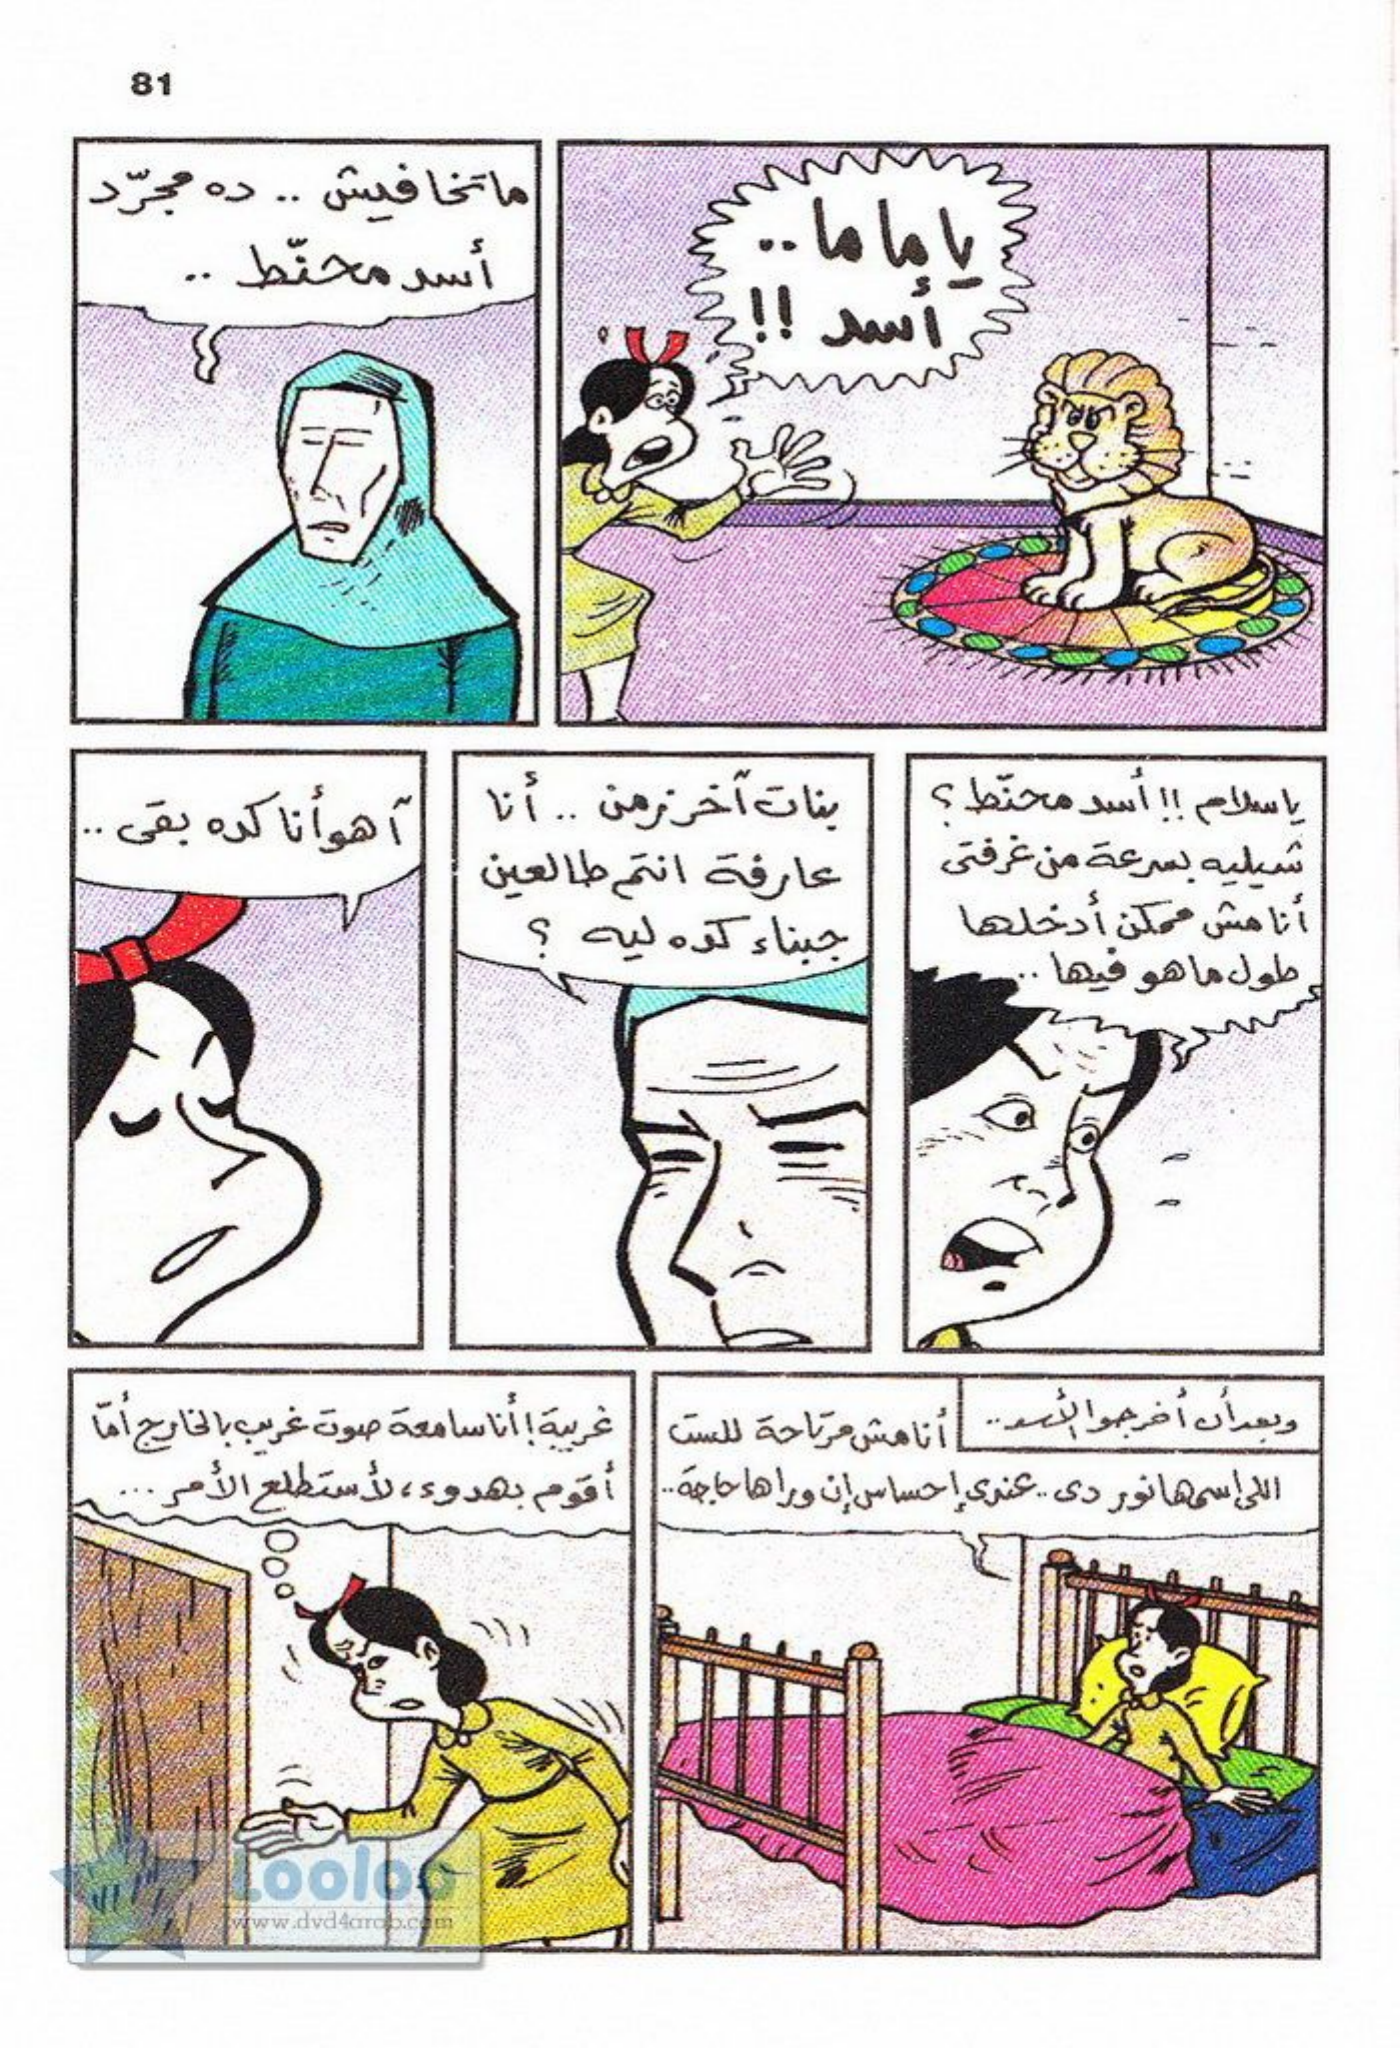 81
ياماما..
أسد !!
ماتخافيش .. ده مجرّد
أسد محنّط ..
ياسلام !! أسد محنّط ؟
شيليه بسرعة من غرفتى
أنا مش ممكن أدخلها
طول ما هو فيها ..
بنات آخر زمن .. أنا
عارفة انتم طالعين
جبناء كده ليه ؟
آهو أنا كده بقى ..
وبعد أن أخرجوا الأسد..
أنا مش مرتاحة للست
اللى اسمها نور دى .. عندى إحساس إن وراها حاجة..
غريبة ! أنا سامعة صوت غريب بالخارج أمّا
أقوم بهدوء، لأستطلع الأمر ...
Looloo
www.dvd4arab.com